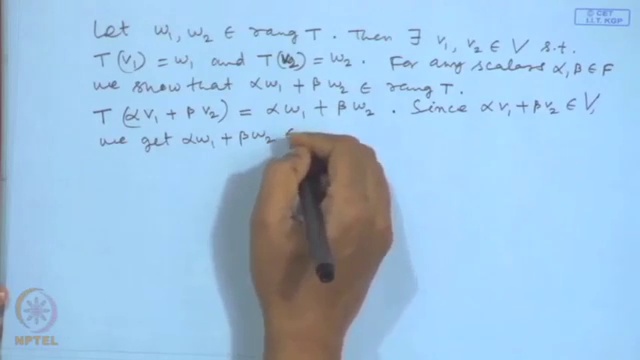 © CET
I.I.T. KGP
Let w₁, w₂ ∈ rang T. Then ∃ v₁, v₂ ∈ V s.t.
T(v₁) = w₁ and T(v₂) = w₂. For any scalars α, β ∈ F
we show that αw₁ + βw₂ ∈ rang T.
T(αv₁ + βv₂) = αw₁ + βw₂. Since αv₁ + βv₂ ∈ V,
we get αw₁ + βw₂ ∈
NPTEL